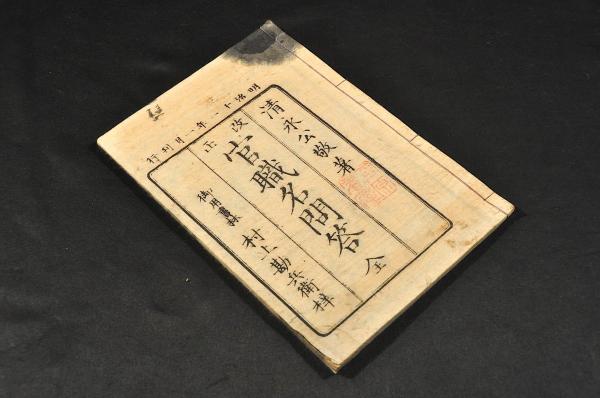 明治十一年一月刻行
清永公敬著
改正 官職名問答 全
御用書肆 村上勘兵衛梓